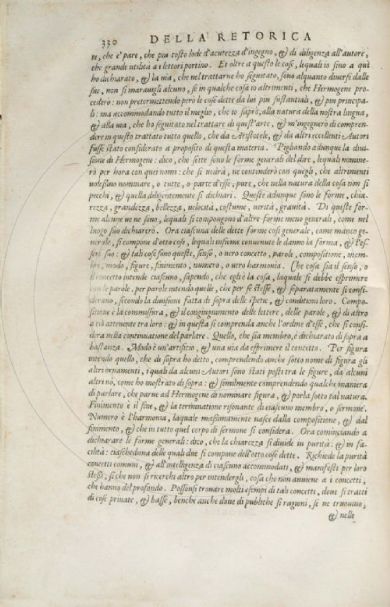 330 DELLA RETORICA
te, che è pare, che piu tosto lode d'acutezza d'ingegno, & di diligenza all'autore,
che grande utilità a i lettori portino. Et oltre a questo le cose, lequali io sino a quì
ho dichiarato, & la uia, che nel trattarne ho seguitato, sono alquanto diuersi dalle
sue, non si marauigli alcuno, se in qualche cosa io altrimenti, che Hermogene pro
cederò: non pretermettendo però le cose dette da lui piu sustantiali, & piu principa
li: ma accommodando tutto il meglio, che io saprò, alla natura della nostra lingua,
& alla uia, che ho seguitato nel trattare di quest'arte, & m'ingegnerò di compren
dere in questo trattato tutto quello, che da Aristotele, & da altri eccellenti Autori
fusse stato considerato a proposito di questa materia. Pigliando adunque la diui
sione di Hermogene: dico, che sette sono le forme generali del dire, lequali nomine
rò per hora con quei nomi: che si uedrà, ne contenderò con quegli, che altrimenti
uolessino nominare, o tutte, o parte d'esse; pure, che nella natura della cosa non si
pecchi, & quella diligentemente si dichiari. Queste adunque sono le forme, chia,
rezza, grandezza, bellezza, uelocità, costume, uerità, grauità. Di queste for,
me alcune ne sono, lequali si compongono d'altre forme meno generali, come nel
luogo suo dichiarerò. Ora ciascuna delle dette forme cosi generale, come manco ge
nerale, si compone d'otto cose, lequali insieme conuenute le danno la forma, & l'es
ser suo: & tali cose sono queste, senso, o uero concetto, parole, compositione, mem
bro, modo, figure, finimento, numero, o uero harmonia. Che cosa sia il senso, o
il concetto intende ciascuno, sapendo, che esso è la cosa, laquale si debbe esprimere
con le parole. per parole intendo quelle, che per se stesse, & separatamente si consi
derano, secondo la diuisione fatta di sopra delle spetie, & conditioni loro. Compo,
sitione è la commessura, & il congiugnimento delle lettere, delle parole, & di altro
a ciò attenente tra loro: & in questa si comprenda anche l'ordine d'esse, che si consi
dera nella continuatione del parlare. Quello, che sia membro, è dichiarato di sopra a
bastanza. Modo è un'artifitio, & una uia da esprimere il concetto. Per figura
intendo quello, che di sopra ho detto, comprendendo anche sotto nome di figura gli
altri ornamenti, i quali da alcuni Autori sono stati posti tra le figure, da alcuni
altri nò, come ho mostrato di sopra: & similmente comprendendo qualche maniera
di parlare, che parue ad Hermogene di nominare figura, & porla sotto tal natura.
Finimento è il fine, & la terminatione risonante di ciascuno membro, o sermone.
Numero è l'harmonia, laquale massimamente nasce dalla compositione, & dal
finimento, & che in tutto quel corpo di sermone si considera. Ora cominciando a
dichiarare le forme generali: dico, che la chiarezza si diuide in purità: & in fa
cilità: ciascheduna delle quali due si compone dell'otto cose dette. Richiede la purità
concetti comuni, & all'intelligenza di ciascuno accommodati, & manifesti per loro
stessi, si che non si ricerchi altro per intendergli, cosa che non auuiene a i concetti,
che hanno del profondo. Possonsi trouare molti esempi di tali concetti, doue si tratti
di cose priuate, & basse, benche anche doue di publiche si ragioni, se ne truouino,
& nelle